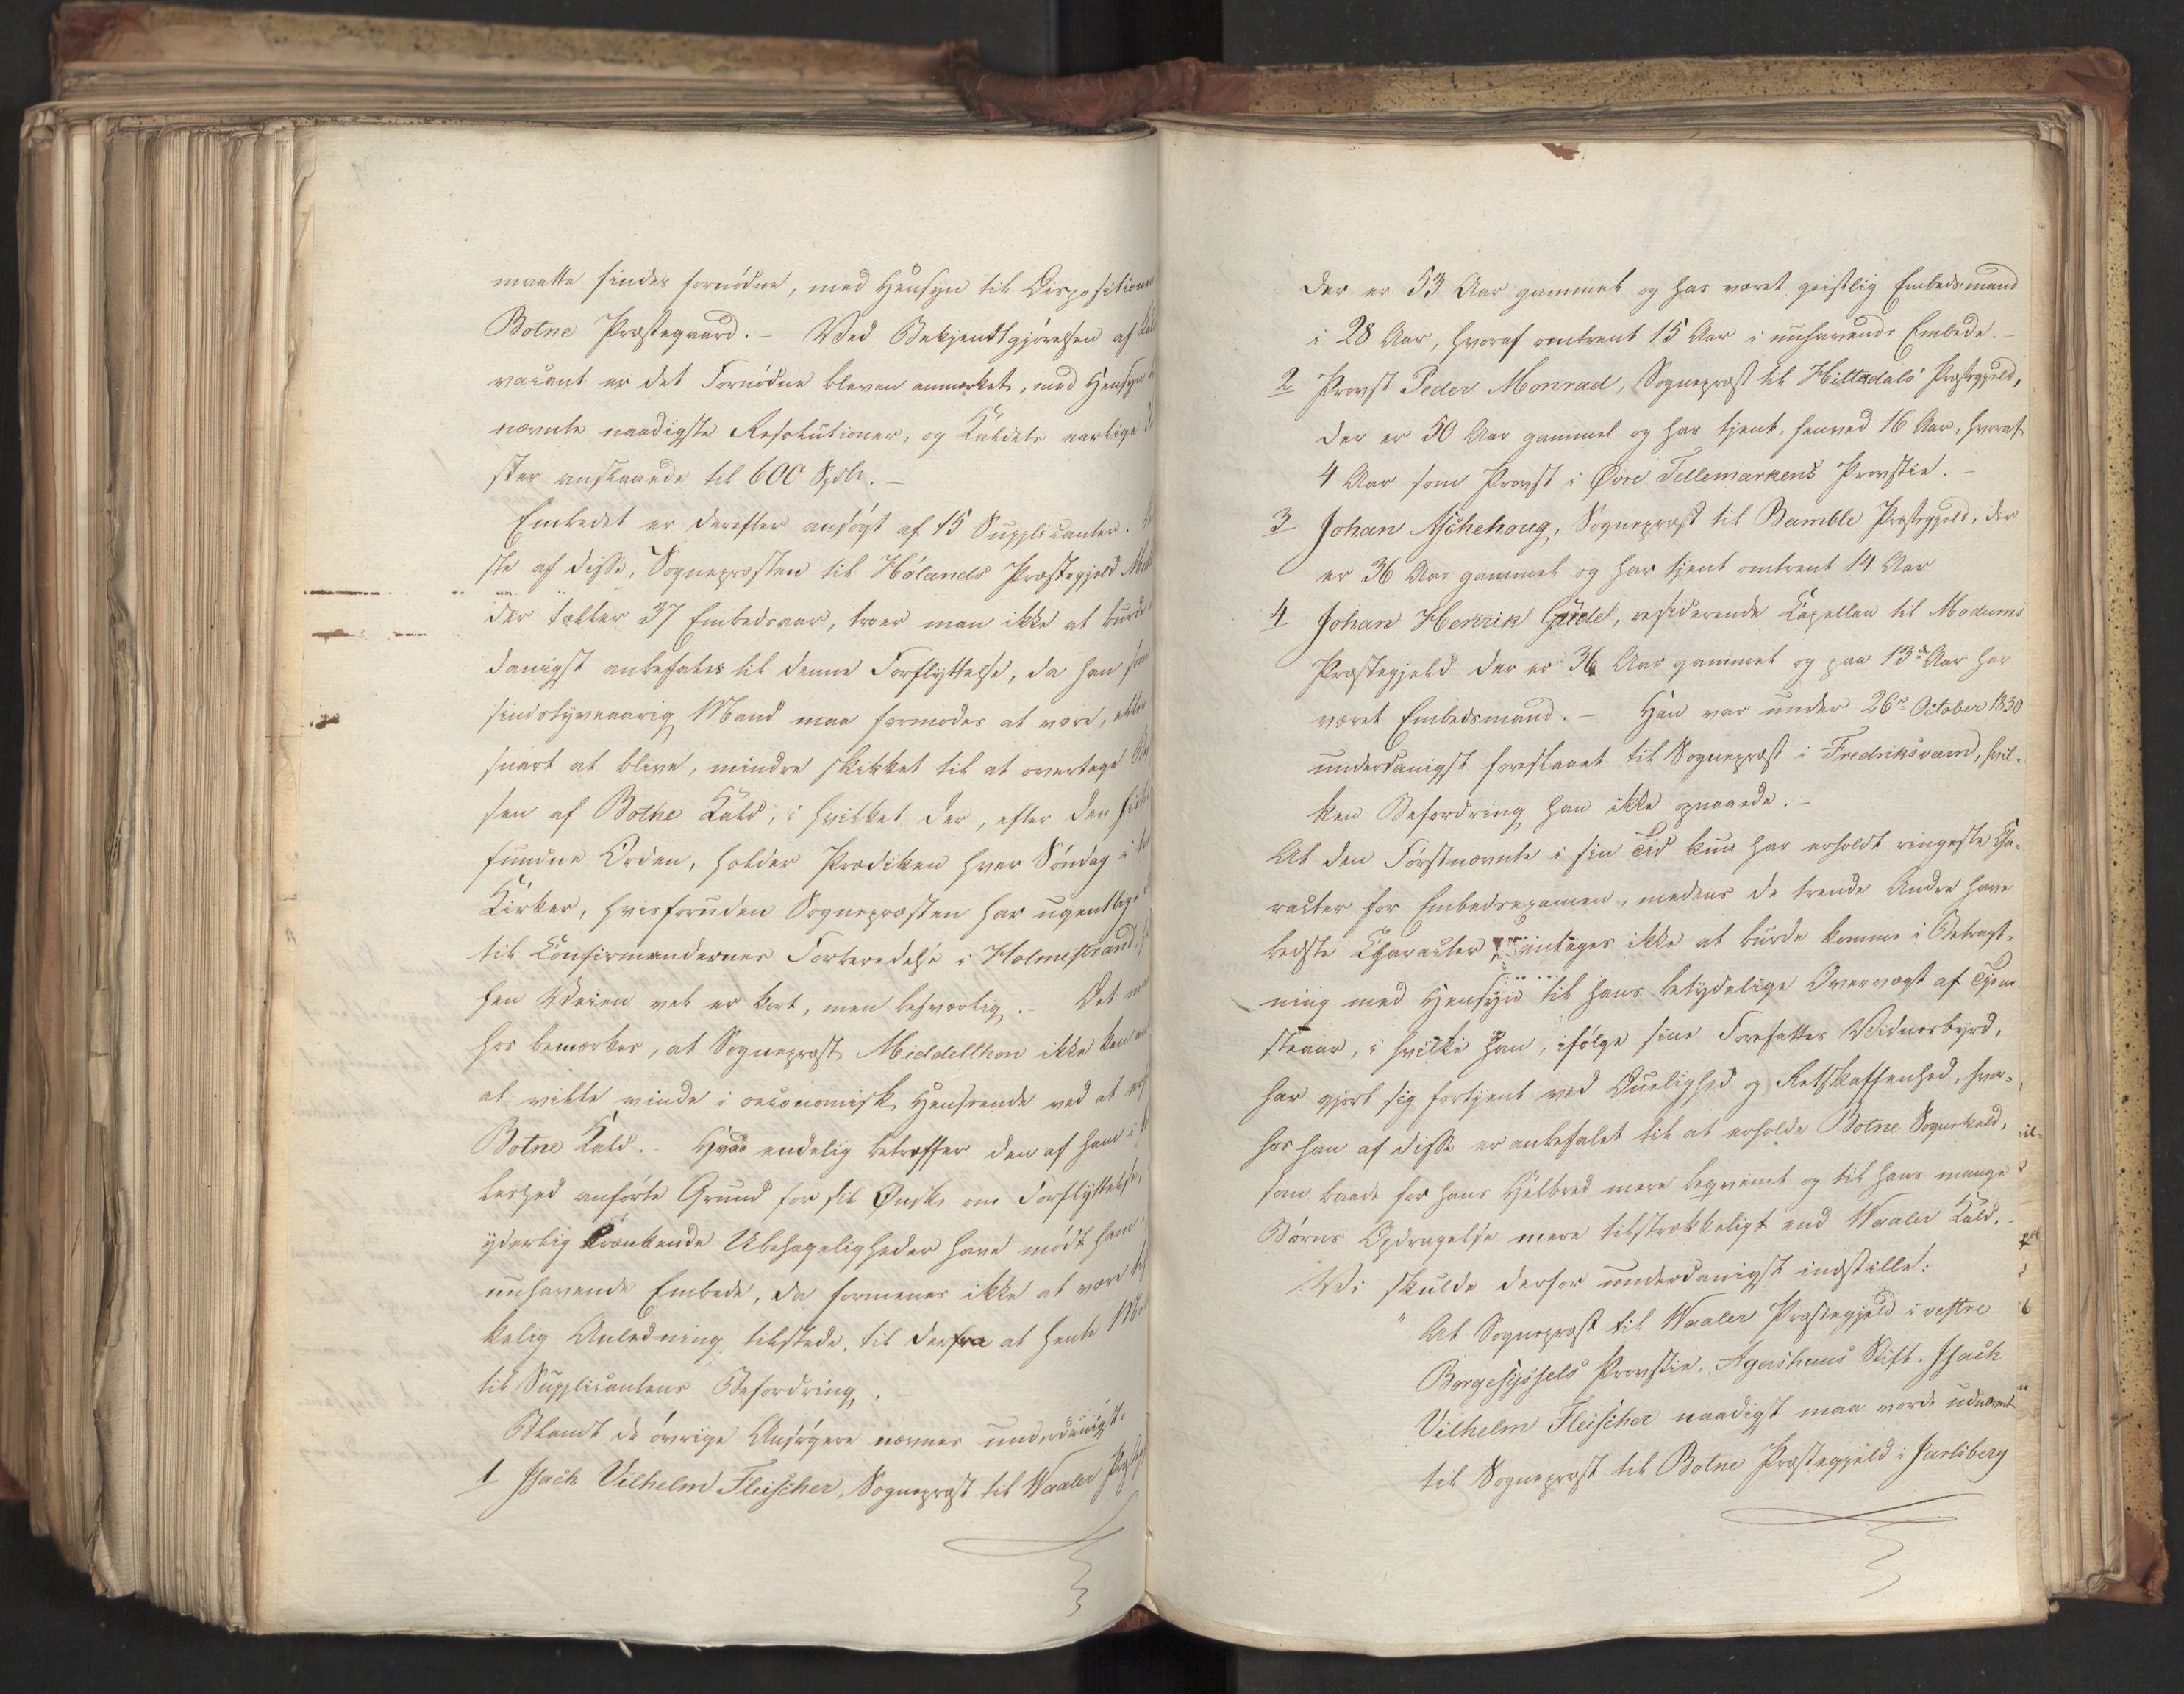 maatte findes fornødne, med Hensyn til Dispositionen
Botne Præstegaard. – Ved Bekjendtgjørelsen af Kal
vacant er det Fornødne bleven anmærket, med Hensyn
nævnte naadigste Resolutioner, og Kaldets aarlige
ster anslaaede til 600 Spdlr. –
Embedet er derefter ansøgt af 15 Supplicanter.
ste af disse, Sognepræsten til Hølands Præstegjeld
der tæller 37 Embedsaar, troer man ikke at burde
danigst anbefales til denne Forflyttelse, da han som
sindstyveaarig Mand maa formodes at være, eller
snart at blive, mindre skikket til at overtage
sen af Botne Kald, i hvilket der, efter den
fundne Orden, holdes Prædiken hver Søndag i
Kirker, hvisforuden Sognepræsten har ugentlige
til Confirmandernes Forberedelse i Holmestrand,
hen Veien vel er kort, men besværlig. – Det maa
hos bemærkes, at Sognepræst Middelthon ikke kan
at ville vinde i oeconomisk Henseende ved at
Botne Kald. – Hvad endelig betræffer den af ham i
leshed anførte Grund for sit Ønske om Forflyttelse,
yderlig krænkende Ubehageligheder have mødt ham
nuhavende Embede, da formenes ikke at være
kelig Anledning tilstede, til derfra at hente
til Supplicantens Befordring.
Blandt de øvrige Ansøgere nævnes underdanigst:
1 Isach Vilhelm Fleischer, Sognepræst til Waaler
der er 53 Aar gammel og har været geistlig Embedsmand
i 28 Aar, hvoraf omtrent 15 Aar i nuhavende Embede. –
2 Provst Peder Monrad, Sognepræst til Hitterdals Præstegjeld,
der er 50 Aar gammel og har tjent henved 16 Aar, hvoraf
4 Aar som Provst i Øvre Tellemarkens Provstie. –
3 Johan Aschehoug, Sognepræst til Bamble Præstegjeld, der
er 36 Aar gammel og har tjent omtrent 14 Aar
4 Johan Henrik Gude, residerende Capellan til Modums
Præstegjeld der er 36 Aar gammel og paa 13de Aar har
været Embedsmand. – Han var under 26de October 1830
underdanigst foreslaaet til Sognepræst i Fredriksværn, hvil-
ken Befordring han ikke opnaaede. –
At den Førstnævnte i sin Tid kun har erholdt ringeste Cha-
racter for Embedsexamen, medens de trende Andre have
bedste Character, antages ikke at burde komme i Betragt-
ning med Hensyn til hans betydelige Overvægt af Tjene-
steaar, i hvilke han, ifølge sine Foresattes Vidnesbyrd,
har gjort sig fortjent ved Duelighed og Retskaffenhed, hvor-
hos han af disse er anbefalet til at erholde Botne Sognekald,
som baade for hans Helbred mere beqvemt og til hans mange
Børns Opdragelse mere tilstrækkeligt end Waaler Kald. –
Vi skulde derfor underdanigst indstille:
" At Sognepræst til Waaler Præstegjeld i vestre
Borgesyssels Provstie, Agershuus Stift, Isach
Vilhelm Fleischer naadigst maa vorde udnævnt
til Sognepræst til Botne Præstegjeld i Jarlsberg